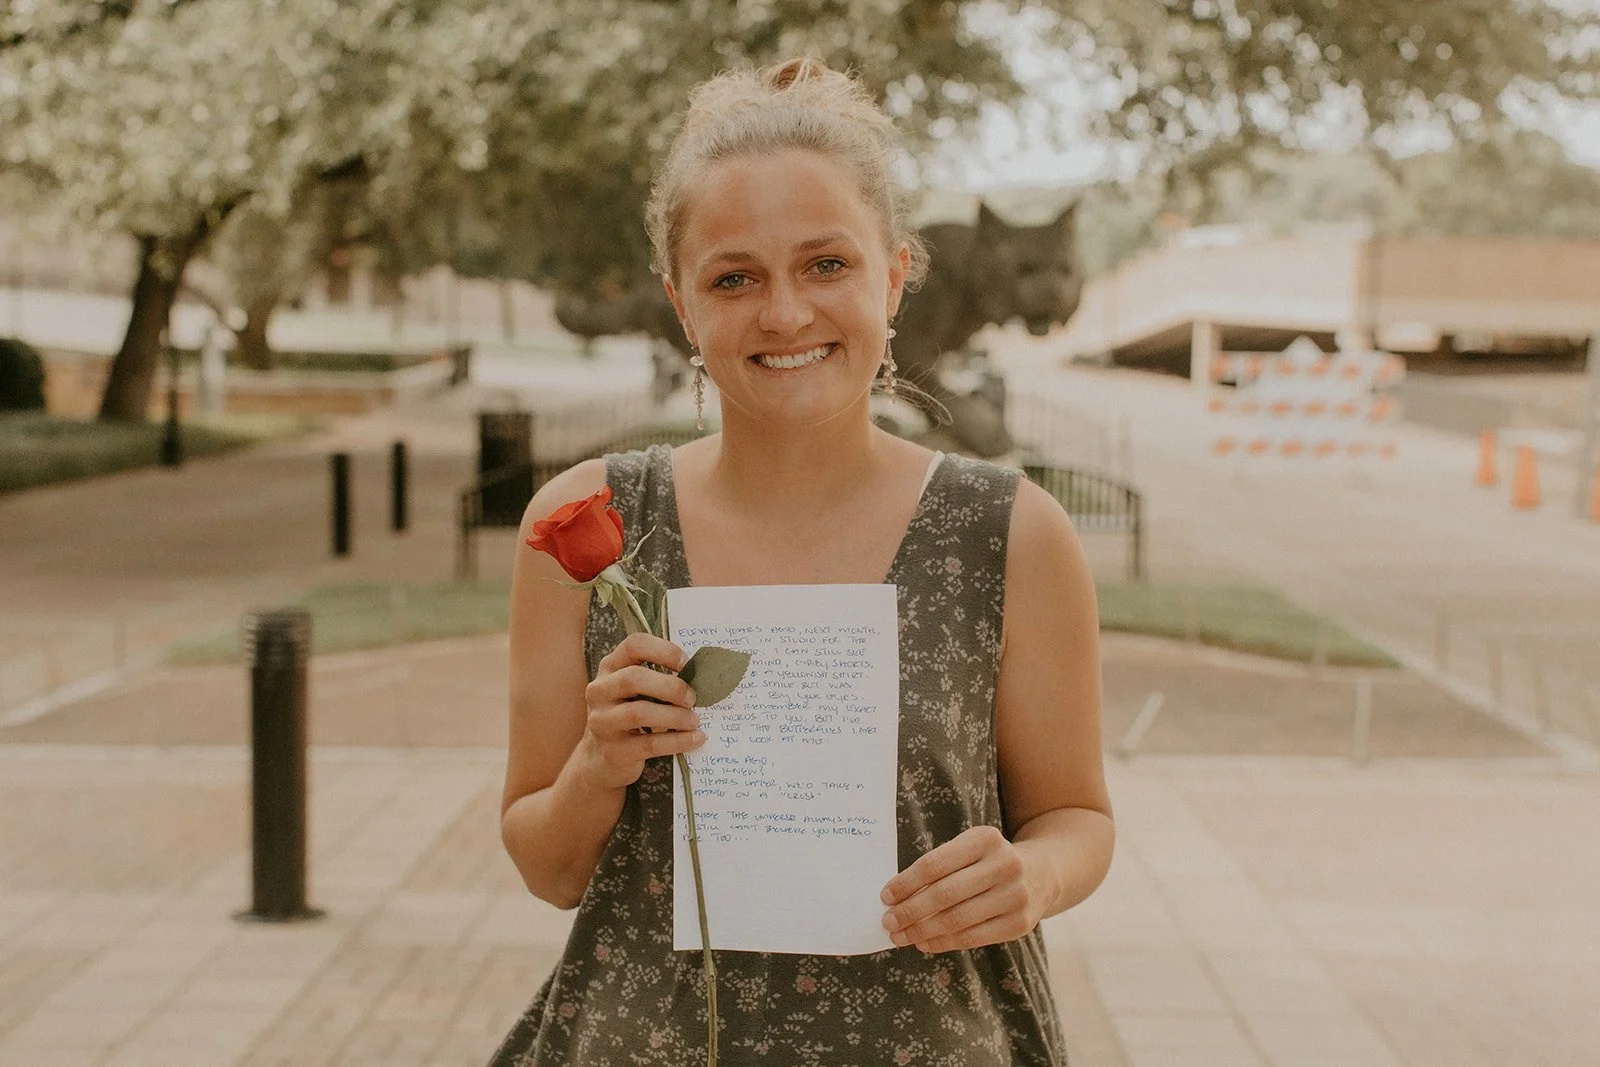 ELEVEN YEARS AGO, NEXT MONTH,
WE'D MEET IN STUDIO FOR THE
I CAN STILL SEE
MIND, GREY SHORTS,
& A YELLOWISH SHIRT.
YOUR SMILE BUT WAS
IN BY YOUR EYES.
NEVER REMEMBER MY EXACT
WORDS TO YOU, BUT I'VE
LOST THE BUTTERFLIES I GET
YOU LOOK AT ME.
YEARS AGO,
WHO KNEW?
YEARS LATER, WE'D TAKE A
CHANCE ON A "CRUSH"
MAYBE THE UNIVERSE ALWAYS KNEW
I STILL CAN'T BELIEVE YOU NOTICED
ME TOO...